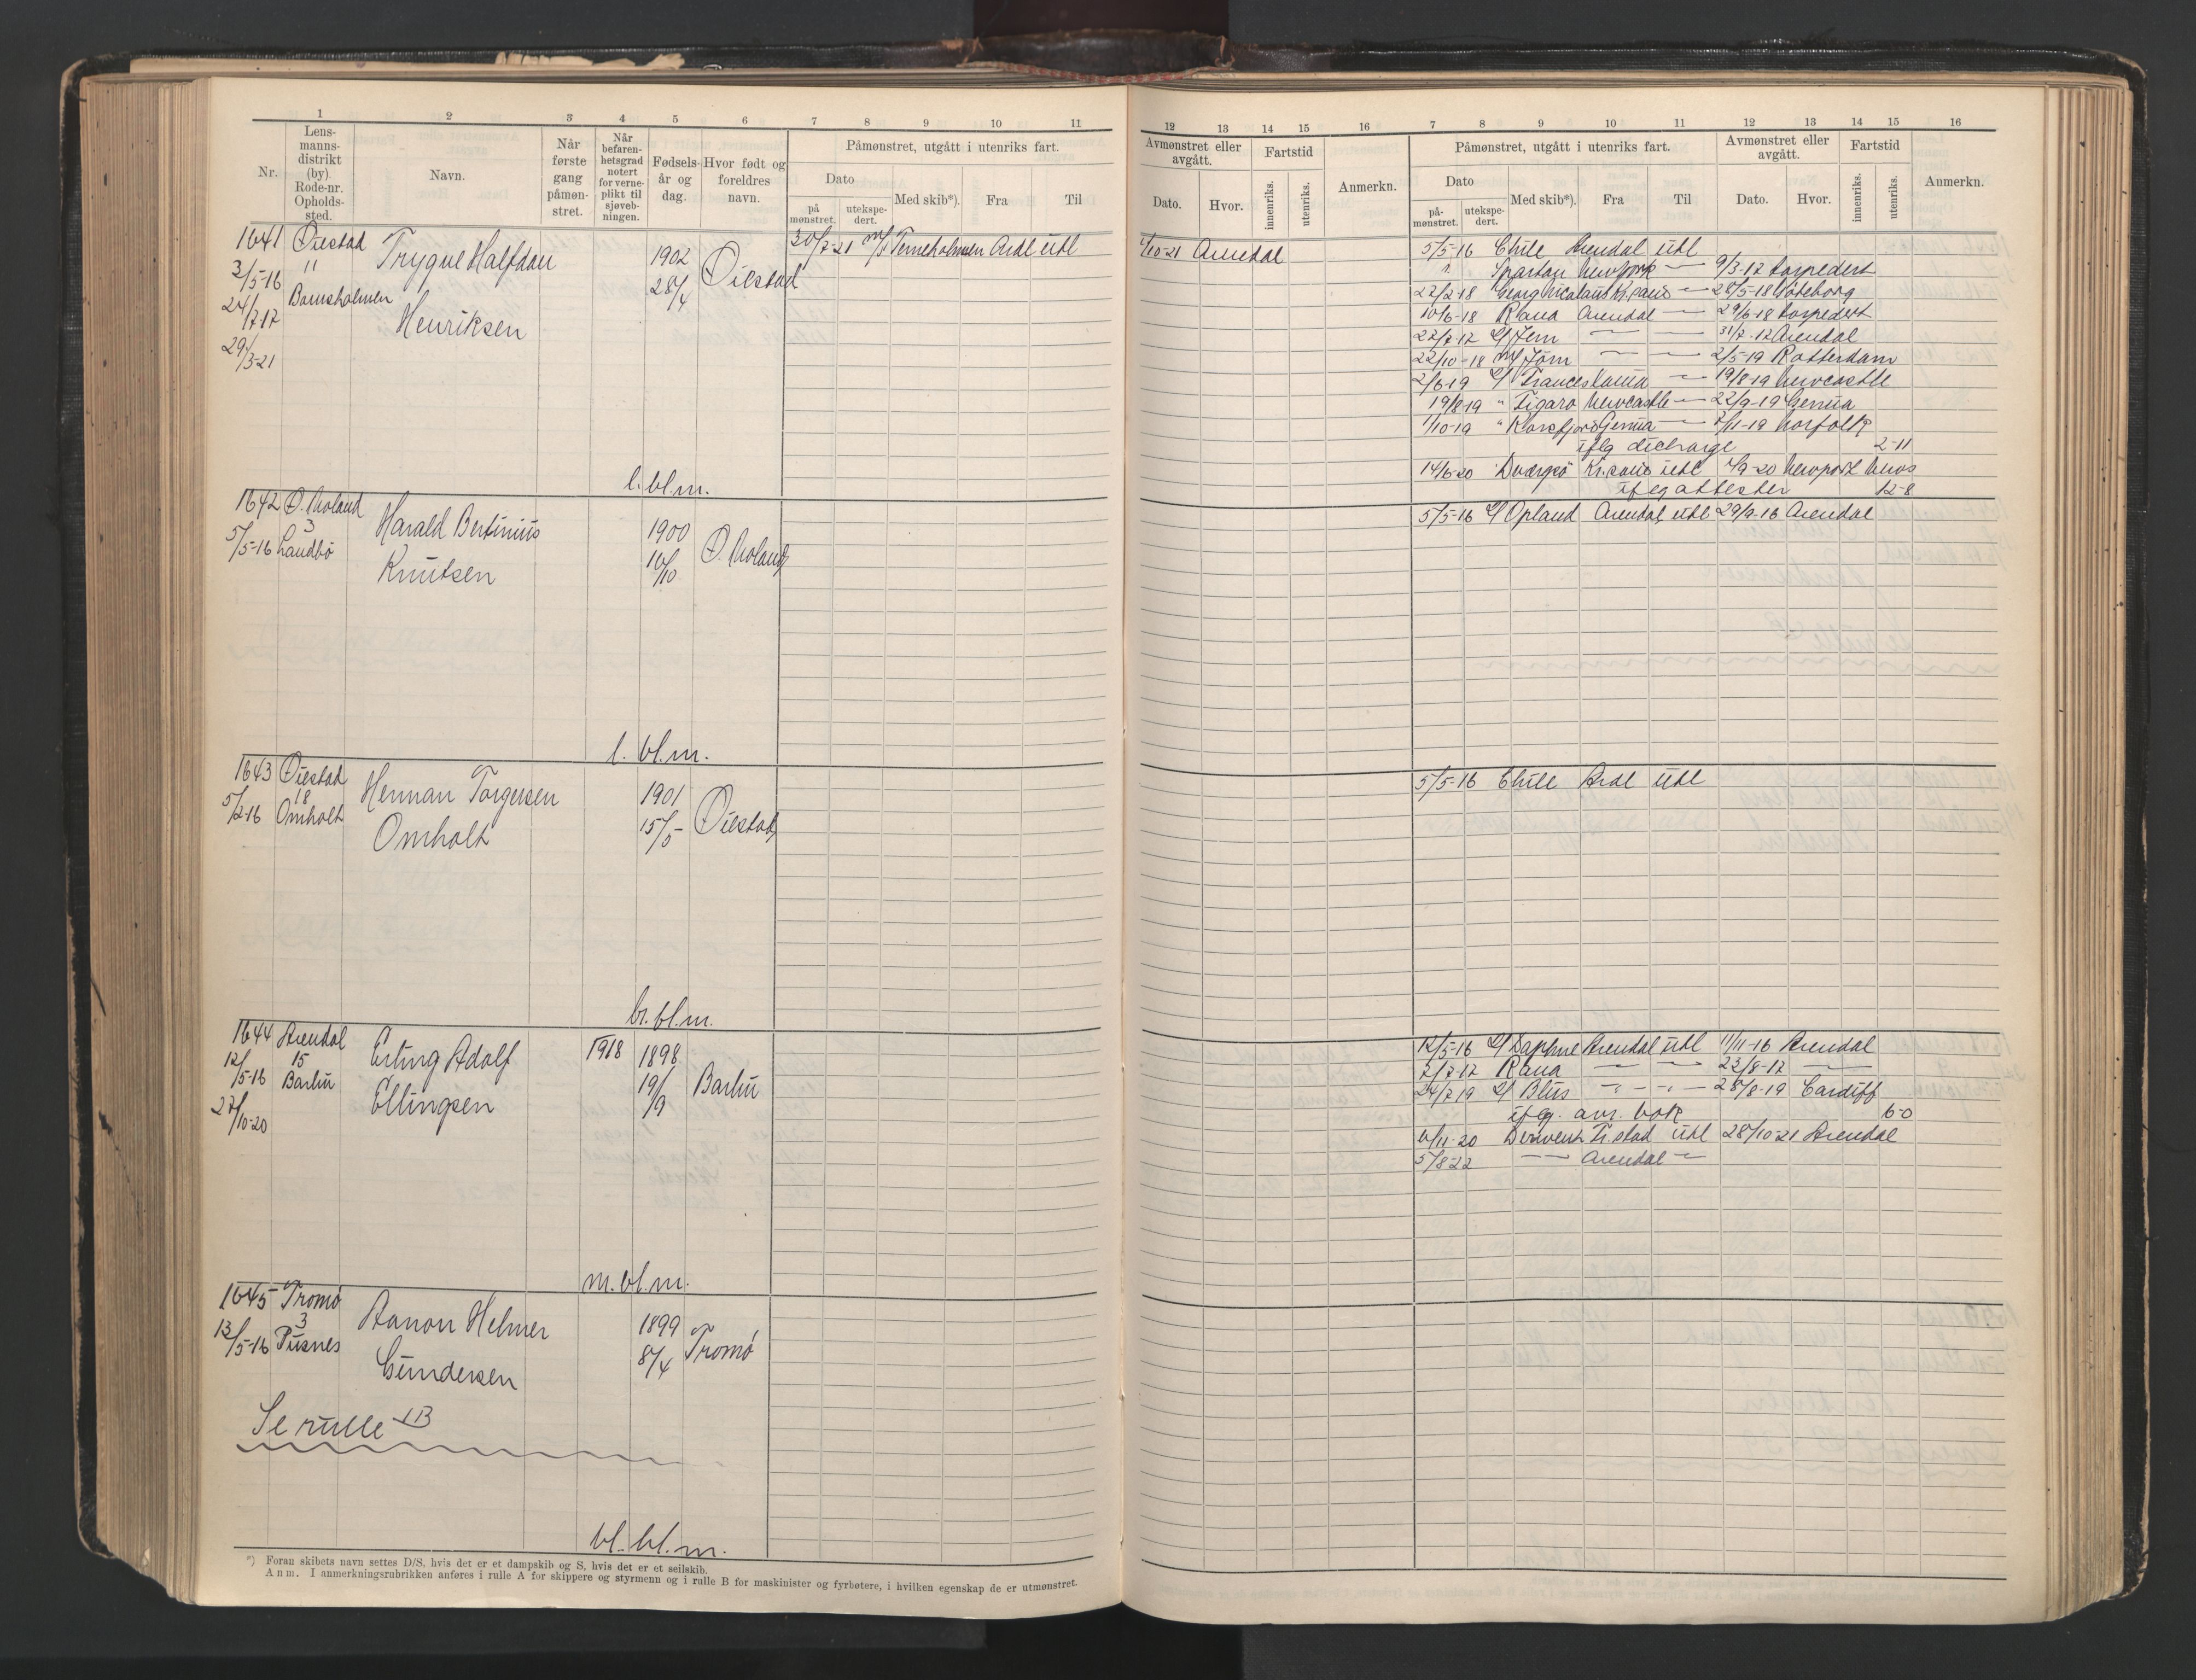 1 2 3 4 5 6 7 8 9 10 11
Nr.
Lens-
manns-
distrikt
(by).
Rode-nr.
Opholds-
sted.
Navn.
Når
første
gang
påmøn-
stret.
Når
befaren-
hetsgrad
notert
for verne-
plikt til
sjøveb-
ningen.
Fødsels-
år og
dag.
Hvor født og
foreldres
navn.
Påmønstret, utgått i utenriks fart.
Dato
på
mønstret.
utekspe-
dert.
Med skib*).
Fra
Til
1641 Øiestad
3/5-16 11
24/7-17 Bomsholmen
29/3-21
Trygve Halfdan
Henriksen
1902
28/4
Øiestad
30/7-21 m/s Terneholmen Ardl utl
l. bl.m.
1642 Ø. Moland
3
5/5-16 Landbø
Harald Bertinius
Knutsen
1900
10/10
Ø. Moland
l. bl.m.
1643 Øiestad
18
5/2-16 Omholt
Herman Torgersen
Omholt
1901
15/5-
Øiestad
br. bl.m.
1644 Arendal
12/5-16 15
Barbu
27/10-20
Erling Adolf
Ellingsen
1918
1898
19/9
Barbu
m. bl.m.
1645 Tromø
3
13/5-16 Pusnes
Aanon Helmer
Gundersen
1899
8/4
Tromø
Se rulle B
bl. bl.m.
*) Foran skibets navn settes D/S, hvis det er et dampskib og S, hvis det er et seilskib.
Anm. I anmerkningsrubrikken anføres i rulle A for skippere og styrmenn og i rulle B for maskinister og fyrbøtere, i hvilken egenskap de er utmønstret.
12 13 14 15 16 7 8 9 10 11 12 13 14 15 16
Avmønstret eller
avgått.
Dato.
Hvor.
Fartstid
innenriks.
utenriks.
Anmerkn.
Påmønstret, utgått i utenriks fart.
Dato
på-
mønstret.
utekspe-
dert.
Med skib*).
Fra
Til
Avmønstret eller
avgått.
Dato.
Hvor.
Fartstid
innenriks.
utenriks.
Anmerkn.
/10-21 Arendal
5/5-16 Chile Arendal utl
" Spartan Newyork — 9/3-17 torpedert
22/2-18 Georg Nicolaus Kr.sand — 28/5-18 Göteborg
10/6-18 Rana Arendal — 29/6-18 torpedert
22/7-17 S/ Jem — — 31/7-17 Arendal
22/10-18 m/ — — 2/5-19 Rotterdam
2/6-19 S/ — 19/8-19 Newcastle
19/8-19 " Figaro Newcastle — 22/9-19 Genua
1/10-19 " Korsfjord Genua — /11-19 Norfolk
iflg discharge 2-11
14/6-20 Dvergsø Kr.sand utl /9-20 Newport News
iflg attester 12-8
5/5-16 S/ Opland Arendal utl 29/9-16 Arendal
5/5-16 Chile Ardl utl
12/5-16 S/ Daphne Arendal utl 11/11-16 Arendal
2/7-17 Rana — — 23/8-17 —
24/7-19 S/ Blus — " — " — 28/8-19 Cardiff
iflg. avr. bok 6-0
6/11-20 Derwent Fr.stad utl 28/10-21 Arendal
5/8-22 — — Arendal —